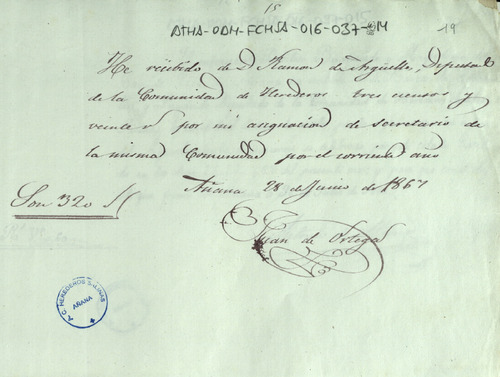 15
ATHA-DAH-FCHSA-016-037-14
19
He recibido de D. Ramon de Argüelles, Diputado
de la Comunidad de Herederos tres cientos y
veinte r por mi asignacion de secretario de
la misma Comunidad por el corriente año
Añana 28 de Junio de 1867
Son 320 r
Juan de Ortega
A.C. HEREDEROS SALINAS
AÑANA